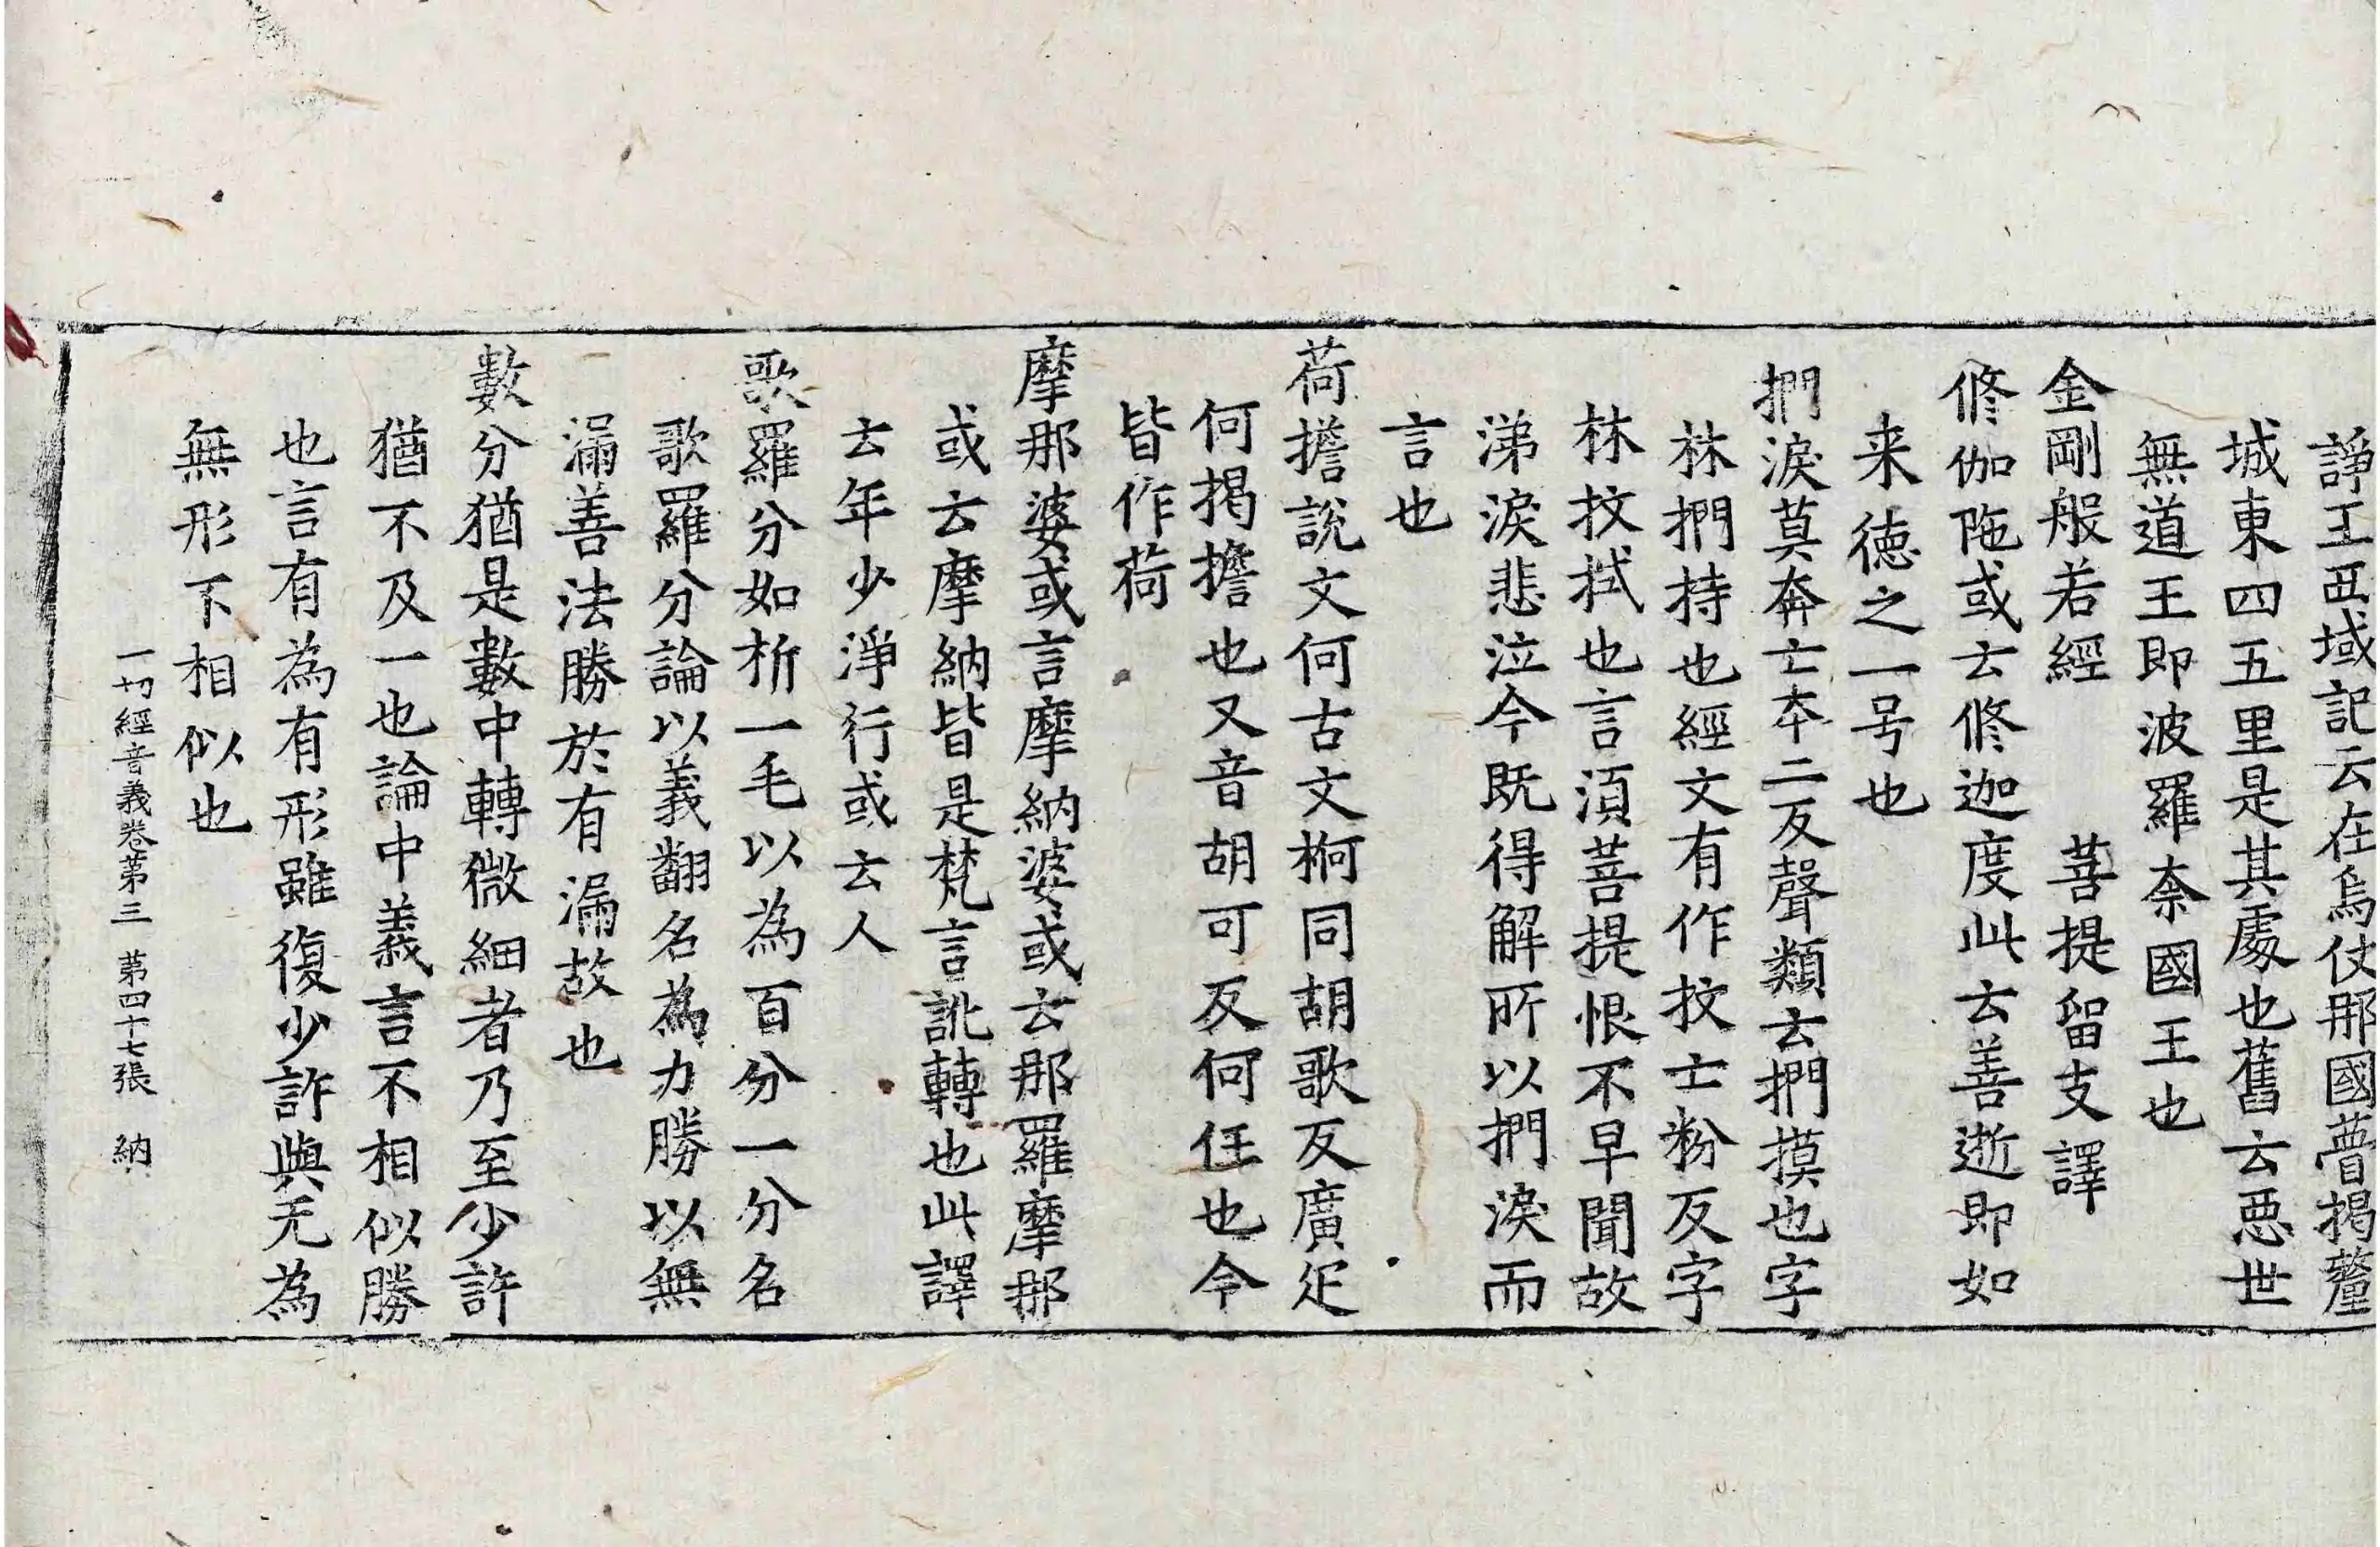 諍王西域記云在烏仗那國瞢揭釐
城東四五里是其處也舊云悪世
無道王即波羅柰國王也
金剛般若經　菩提留支譯
修伽陁或云修迦度此云善逝即如
来德之一号也
捫淚莫奔亡本二反聲類云捫摸也字
林捫持也經文有作抆亡粉反字
林抆拭也言湏菩提恨不早聞故
涕淚悲泣今既得解所以捫淚而
言也
荷擔說文何古文柯同胡歌反廣疋
何揭擔也又音胡可反何任也今
皆作荷
摩那婆或言摩納婆或云那羅摩那
或云摩納皆是梵言訛轉也此譯
云年少淨行或云人
歌羅分如析一毛以為百分一分名
歌羅分論以義翻名為力勝以無
漏善法勝於有漏故也
數分猶是數中轉微細者乃至少許
猶不及一也論中義言不相似勝
也言有為有形雖復少許與无為
無形不相似也
一切經音義卷第三　第四十七張　納